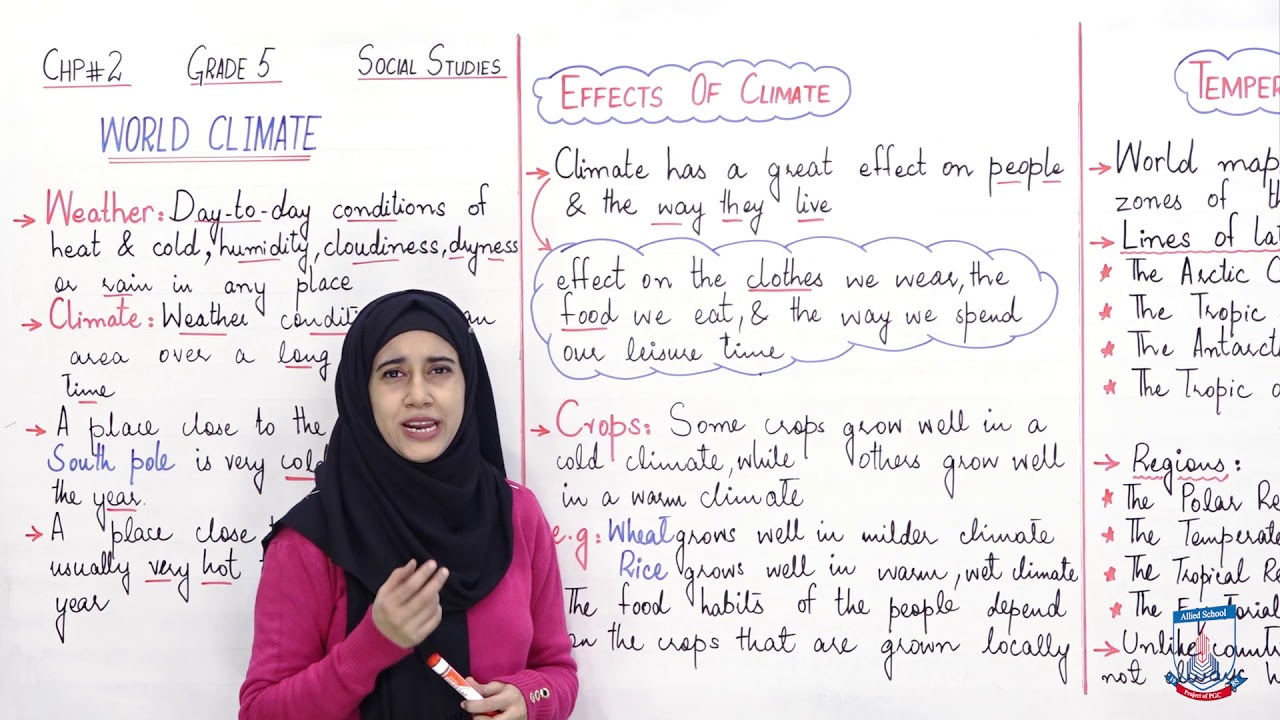 CHP#2 GRADE 5 SOCIAL STUDIES
WORLD CLIMATE
→ Weather: Day-to-day conditions of
heat & cold, humidity, cloudiness, dryness
or rain in any place
→ Climate: Weather condit
area over a long
time
→ A place close to the
South pole is very cold
the year.
→ A place close
usually very hot
year
EFFECTS OF CLIMATE
→ Climate has a great effect on people
& the way they live
effect on the clothes we wear, the
food we eat, & the way we spend
our leisure time
→ Crops: Some crops grow well in a
cold climate, while others grow well
in a warm climate
e.g: Wheat grows well in milder climate
Rice grows well in warm, wet climate
The food habits of the people depend
on the crops that are grown locally
TEMPER
→ World map
zones of th
→ Lines of lat
★ The Arctic C
★ The Tropic
★ The Antarct
★ The Tropic o
→ Regions:
★ The Polar Re
★ The Temperate
★ The Tropical Re
★ The
→ Unlike countr
not
Allied School
Project of PGC